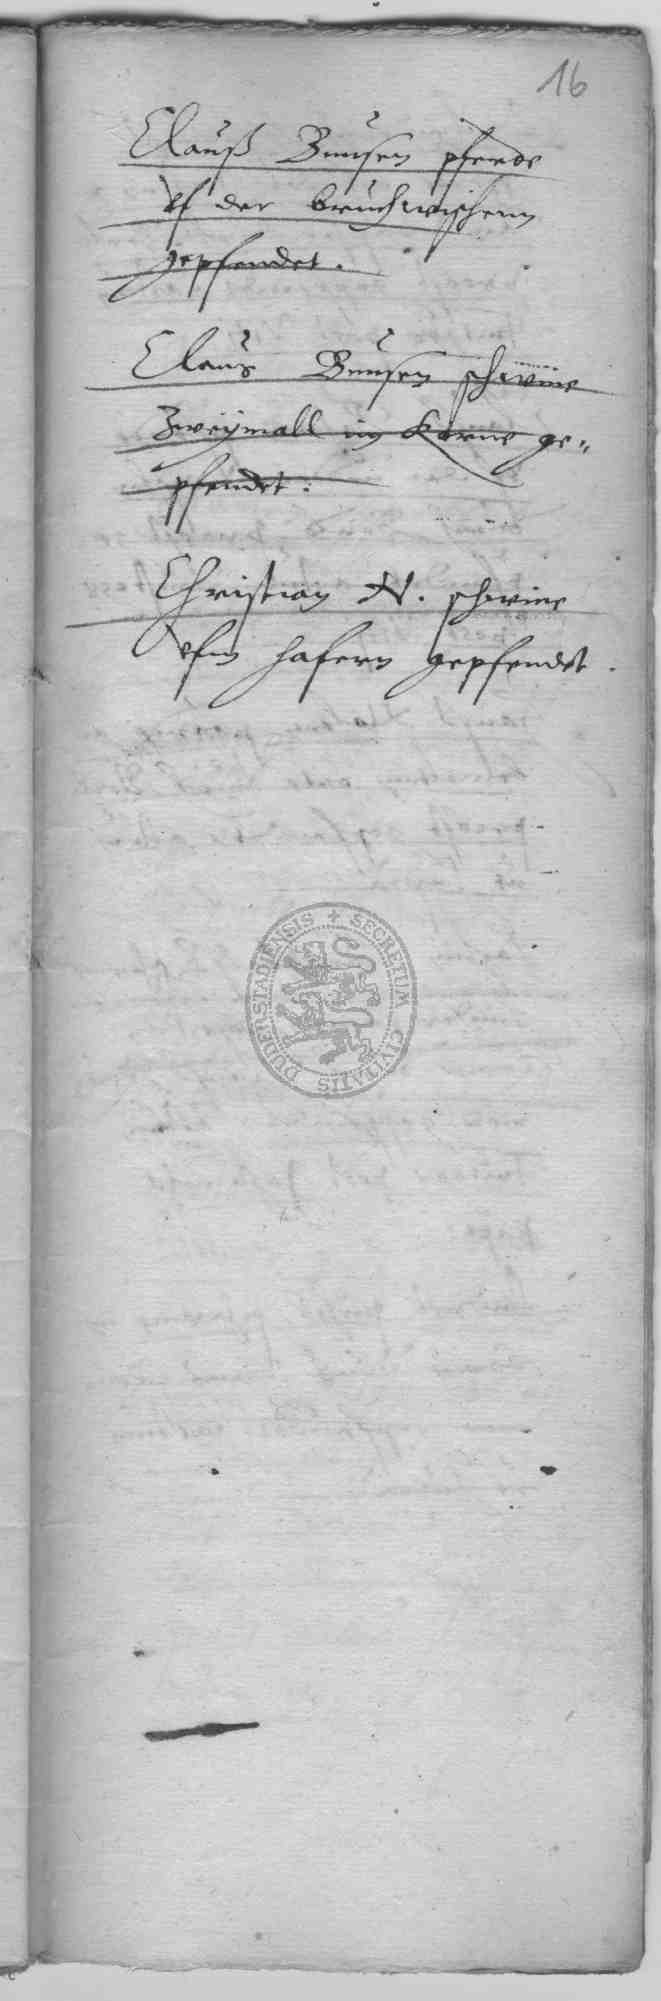 16
Clauß Bunsen pferde
vf der bruchwischenn
gepfendet.
Claus Bunsen schwine
Zweymall im Korne ge-
pfendet:
Christian N. schwine
vfm hafern gepfendet.
SECRETUM CIVITATIS DUDERSTADIENSIS